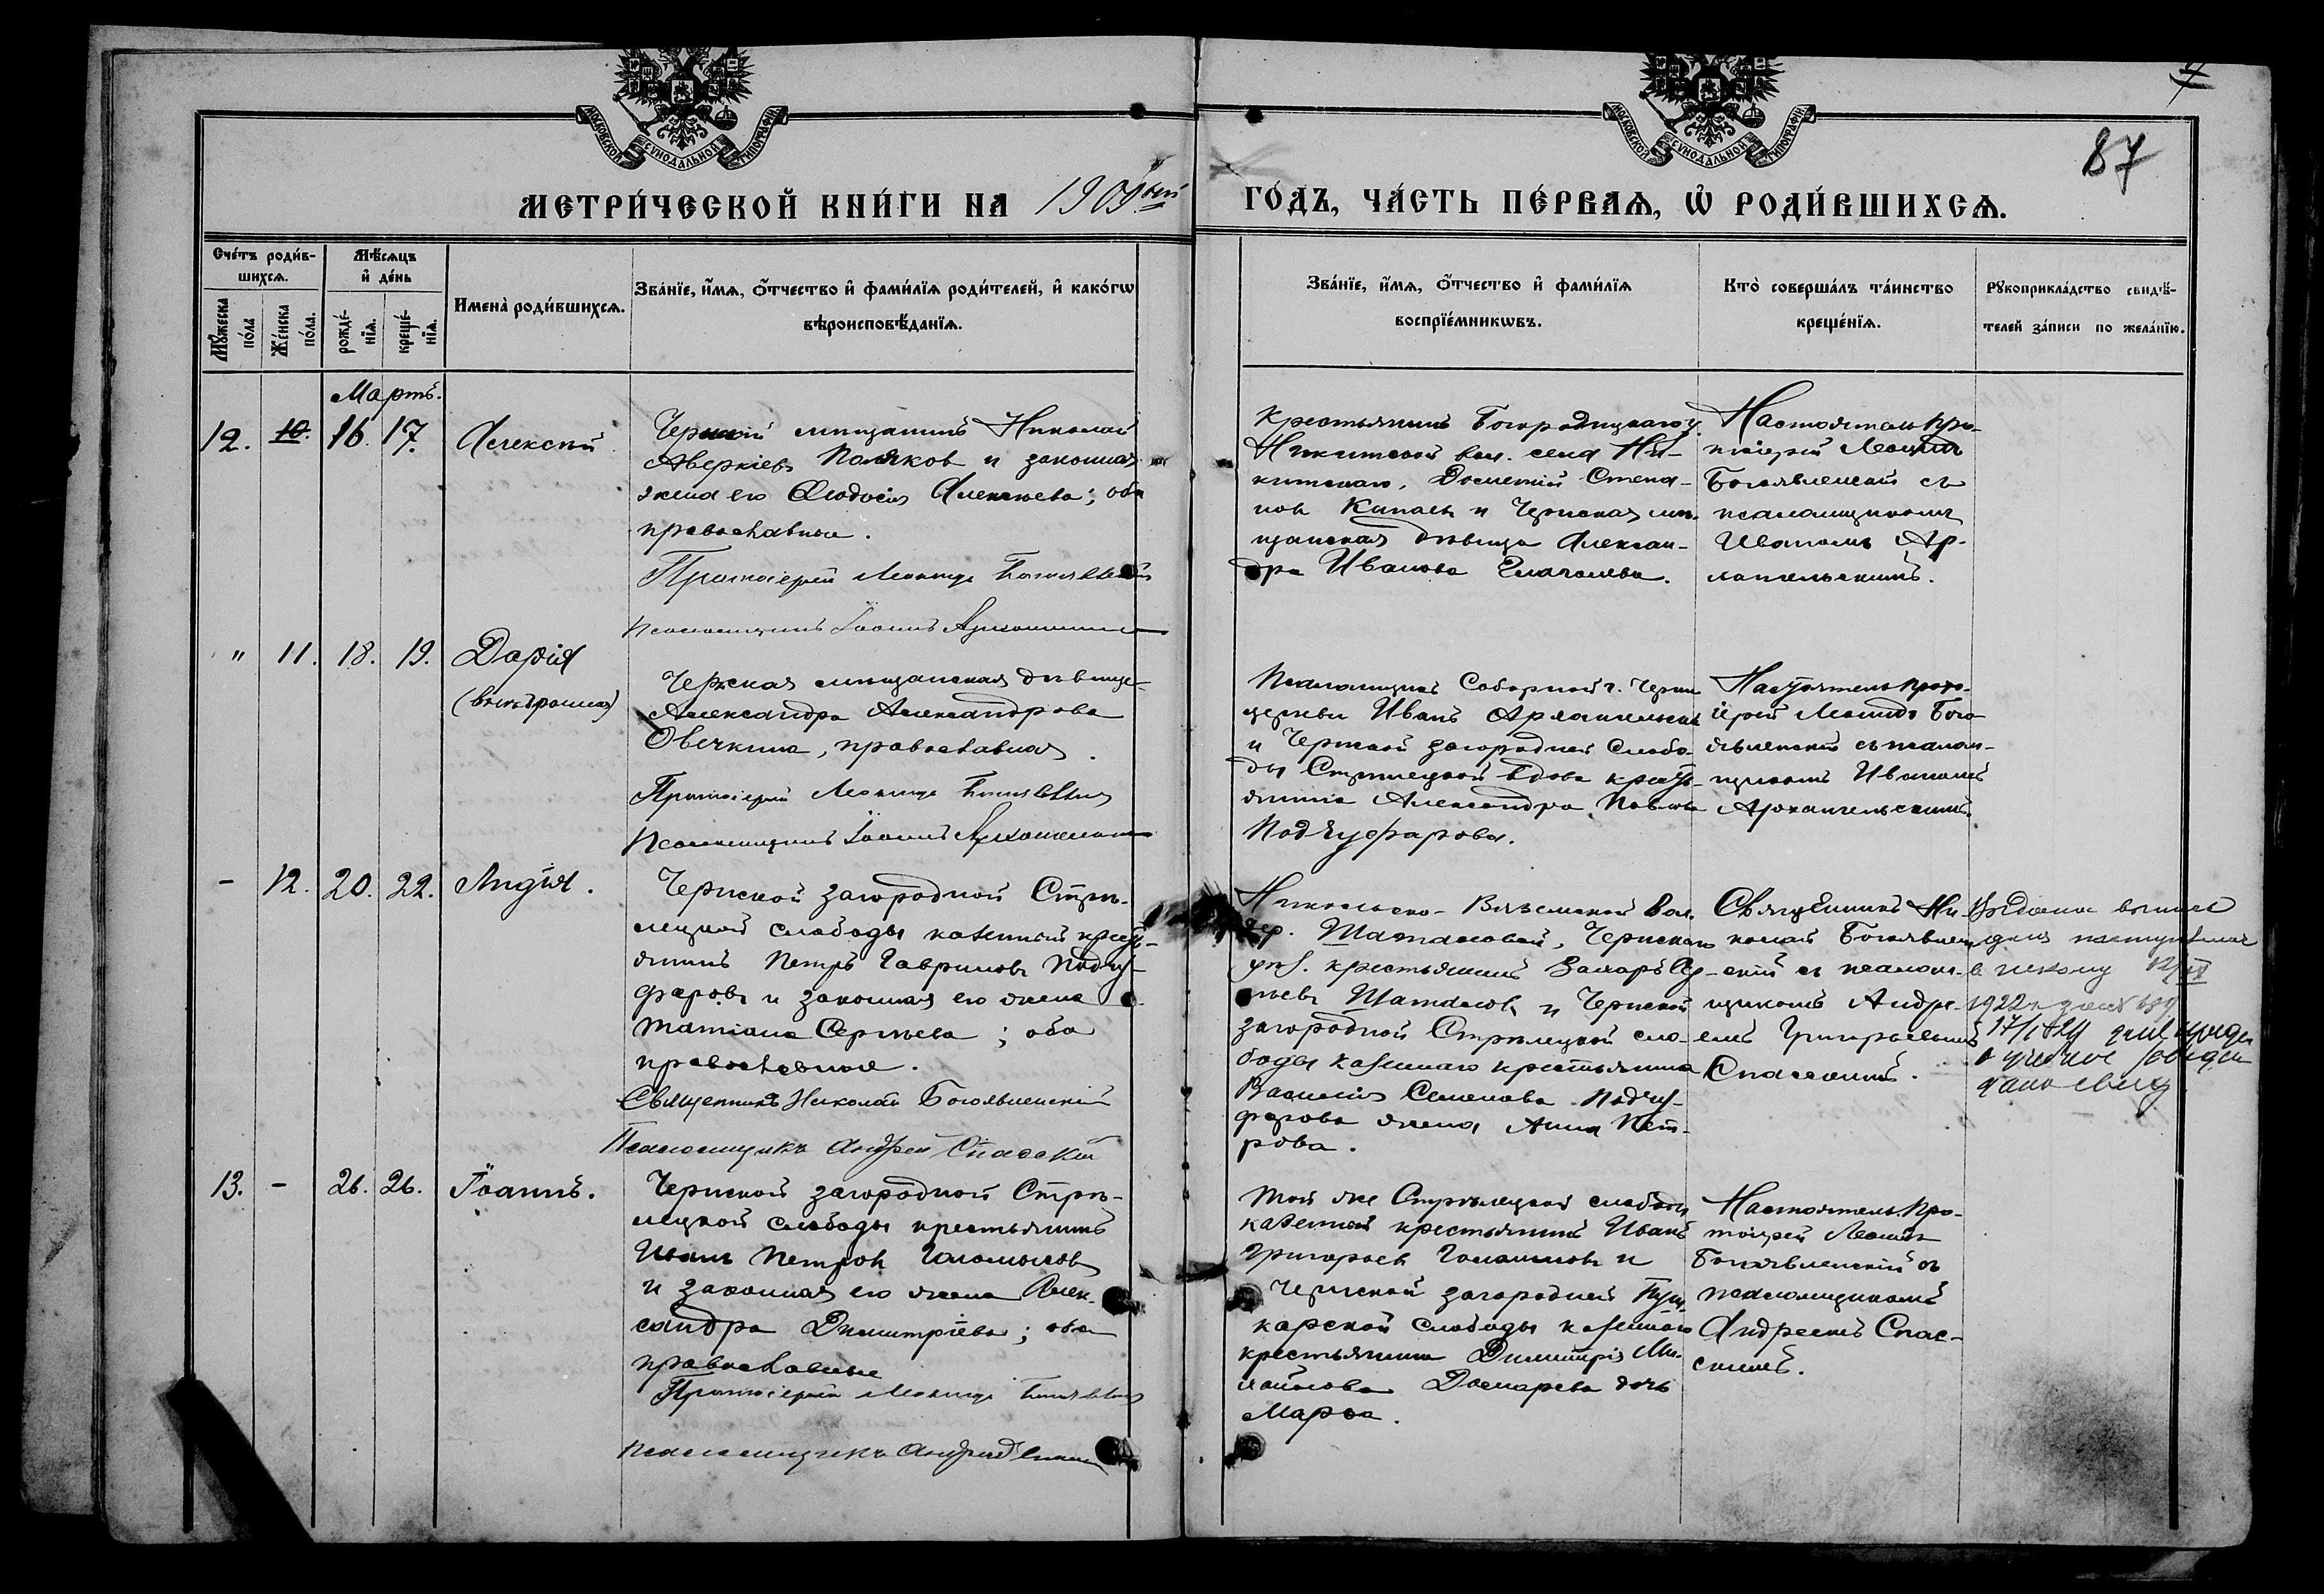 МОСКОВСКОЙ СУНОДАЛЬНОЙ ТИПОГРАФІИ
МОСКОВСКОЙ СУНОДАЛЬНОЙ ТИПОГРАФІИ
87
МЕТРИ́ЧЕСКОЙ КНИ́ГИ НА 1909ый ГО́ДЪ, ЧА́СТЬ ПЕ́РВАѦ, Ѡ҆ РОДИ́ВШИХСѦ.
Сче́тъ роди́в-
шихсѧ.
Мꙋ́жеска по́ла
Же́нска по́ла.
Мѣ́сѧцъ
и҆ де́нь
рожде́-
нїѧ.
креще́-
нїѧ.
Имена̀ роди́вшихсѧ.
Зва́нїе, и҆́мѧ, ѻ҆́тчество и҆ фами́лїѧ роди́телей, и҆ како́гѡ
вѣроисповѣ́данїѧ.
Зва́нїе, и҆́мѧ, ѻ҆́тчество и҆ фами́лїѧ
воспрїе́мникѡвъ.
Кто̀ соверша́лъ та́инство
креще́нїѧ.
Рꙋкоприкла́дство свидѣ́-
телей за́писи по жела́нїю.
Мартъ.
12. 10. 16. 17. Алексѣй
Черн­скій мѣщанинъ Николай
Аверкіевъ Поляковъ и законная
жена его Ѳеодосія Алексѣева; оба
православные.
Протоіерей Леонидъ Богоявленскій
Псаломщикъ Іоаннъ Архангельскій
Крестьянинъ Богородицкаго у.
Никитской вол. села Ни-
китскаго, Дометій Степа-
новъ и Чернская мѣ-
щанская дѣвица Алексан-
дра Иванова
Настоятель про-
тоіерей Леонидъ
Богоявленскій съ
псаломщикомъ
Иваномъ Ар-
хангельскимъ.
" 11. 18. 19. Дарія
(внѣбрачная)
Чернская мѣщанская дѣвица
Александра Александрова
Овечкина, православная.
Протоіерей Леонидъ Богоявленскій
Псаломщикъ Іоаннъ Архангельскій
Псаломщикъ Соборной г. Черни
церкви Иванъ Архангельскій
и Чернской загородней Слобо-
ды Стрѣлецкой вдова кресть-
янина Александра Павлова
Подчуфарова.
Настоятель прото-
іерей Леонидъ Бого-
явленскій съ псалом-
щикомъ Иваномъ
Архангельскимъ.
- 12. 20. 22. Лидія.
Чернской загородной Стрѣ-
лецкой слободы казенный кресть-
янинъ Петръ Гавриловъ Подчу-
фаровъ и законная его жена
Татіана Сергѣева; оба
православные.
Священникъ Николай Богоявленскій
Псаломщикъ Андрей Спасскій
Никольско-Вяземской вол.
дер. Шаталовой, Чернскаго
уѣз. крестьянинъ Захаръ Сер-
гѣевъ Шаталовъ и Чернской
загородной Стрѣлецкой сло-
боды казеннаго крестьянина
Василія Семенова Подчу-
фарова жена Анна Пет-
рова.
Священникъ Ни-
колай Богоявлен-
скій съ псалом-
щикомъ Андре-
емъ Григорьевымъ
Спасскимъ.
Выдана выпись
для поступленія
в школу 12/IX
1922 г.
17/I 1924
13. - 26. 26. Іоаннъ.
Чернской загородной Стрѣ-
лецкой слободы крестьянинъ
Иванъ Петровъ
и законная его жена Алек-
сандра Димитріева; оба
православные
Протоіерей Леонидъ Богоявленскій
Псаломщикъ Андрей Спасскій
Той же Стрѣлецкой слободы
казенный крестьянинъ Иванъ
Григорьевъ и
Чернской загородней Пуш-
карской слободы казеннаго
крестьянина Димитрія Ми-
хайлова дочь
Марѳа.
Настоятель про-
тоіерей Леонидъ
Богоявленскій съ
псаломщикомъ
Андреемъ Спас-
скимъ.